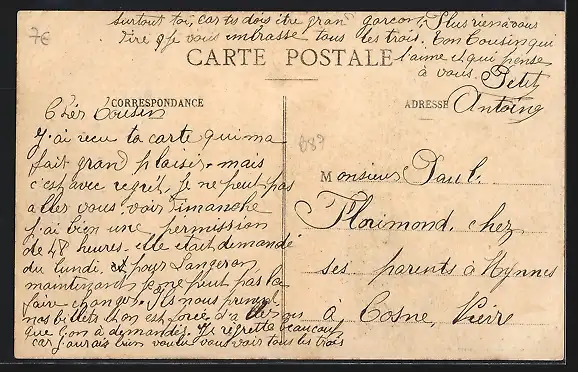 7€
surtout toi, car tu dois être grand garçon. Plus rien à vous
dire q je vous embrasse tous les trois. ton Cousin qui
t'aime et qui pense
à vous. Petit
Antoine
CARTE POSTALE
CORRESPONDANCE
ADRESSE
Cher Cousin
J'ai reçu ta carte qui m'a
fait grand plaisir. mais
c'est avec regret. Je ne peut pas
aller vous voir Dimanche
j'ai bien une permission
de 48 heures. elle était demandé
du lundi. et pour Langeron
maintenant je ne peut pas la
faire changer. Ils nous prennent
nos billets l'on est forcé d'aller ous
que l'on a demandés. Je regrette beaucoup
car j'aurais bien voulu vous voir tous les trois
Monsieur Paul.
Florimond. chez
ses parents à Mynnes
à Cosne, Nièvre